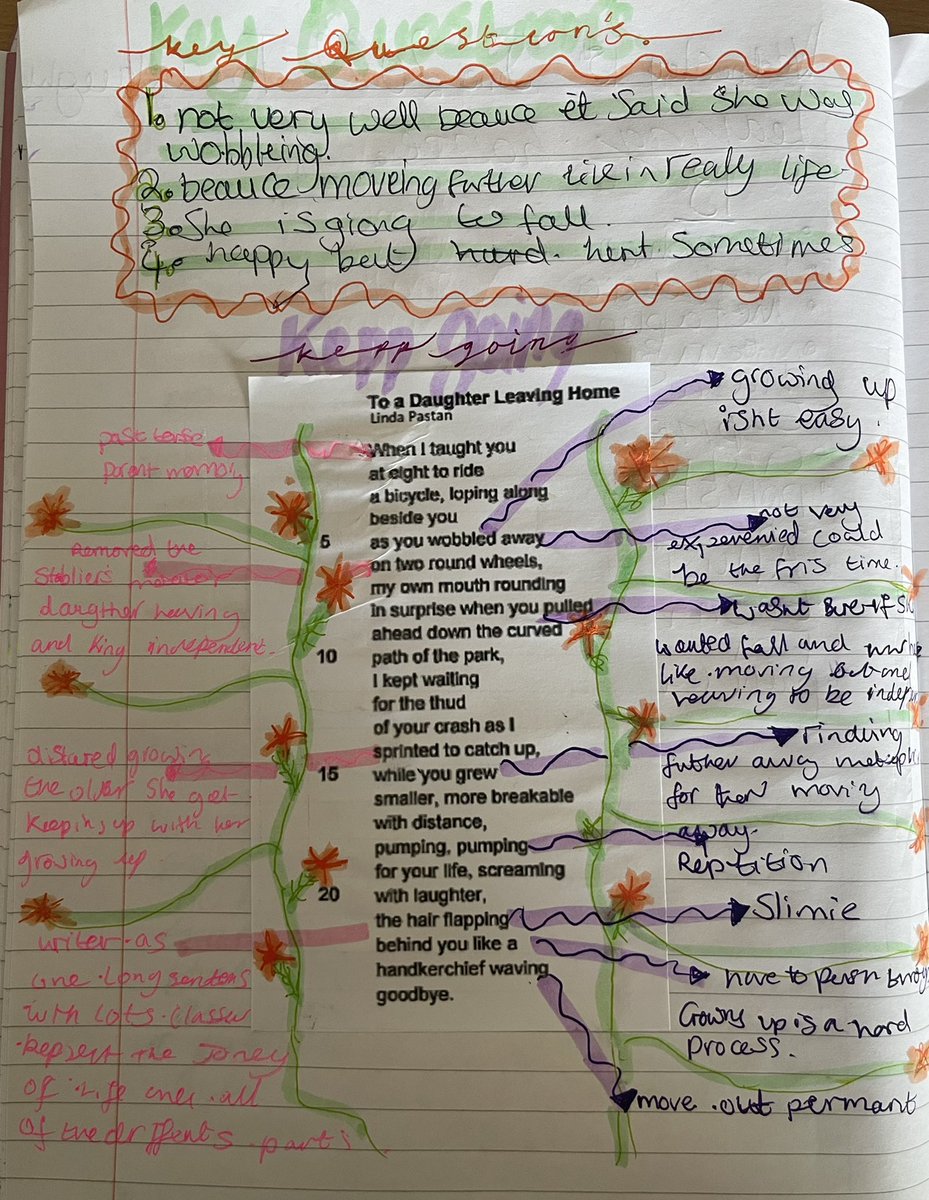 Key Questions.
Key Question's.
1. not very well beauce it Said She was
wobbleing.
2. beauce moveing further like in realy life
3. She is giong to fall.
4. happy but hard. hert Sometimes
Kepp going
kepp going
To a Daughter Leaving Home
Linda Pastan
When I taught you
at eight to ride
a bicycle, loping along
beside you
5 as you wobbled away
on two round wheels,
my own mouth rounding
in surprise when you pulled
ahead down the curved
10 path of the park,
I kept waiting
for the thud
of your crash as I
sprinted to catch up,
15 while you grew
smaller, more breakable
with distance,
pumping, pumping
for your life, screaming
20 with laughter,
the hair flapping
behind you like a
handkerchief waving
goodbye.
past tense
parent memory
Removed the
Stabliers
dargther leaving
and king independent.
distared growin
the older She get
Keeping up with her
growing up
writer as
one long sentens
with Lots classes
Repsert the Joney
of life ones all
of the derffents parts
growing up
isht easy.
not very
expereniied could
be the fris time.
wasnt sure if S
wanted fall and
like moving out and
leaving to be indep
Finduing
futher away metaph
for then moving
away.
Reptition
Slimie
have to persn
Growns up is a hard
process.
move out permant